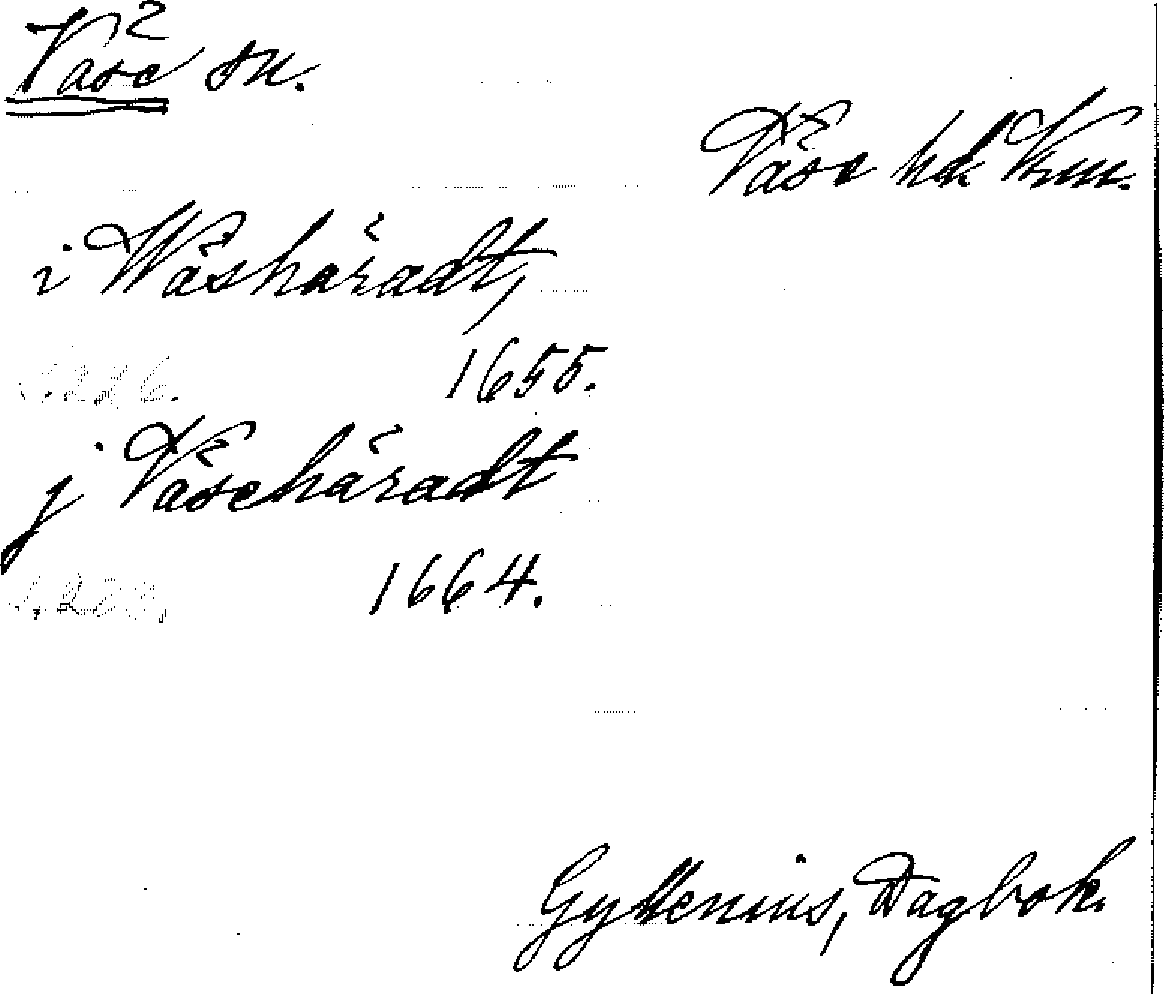 Väse sn.
Väse hd Vrm.
i Wäshäradt,
s. 226. 1655.
j Väsehäradt
1664.
Gyllenius, Dagbok.